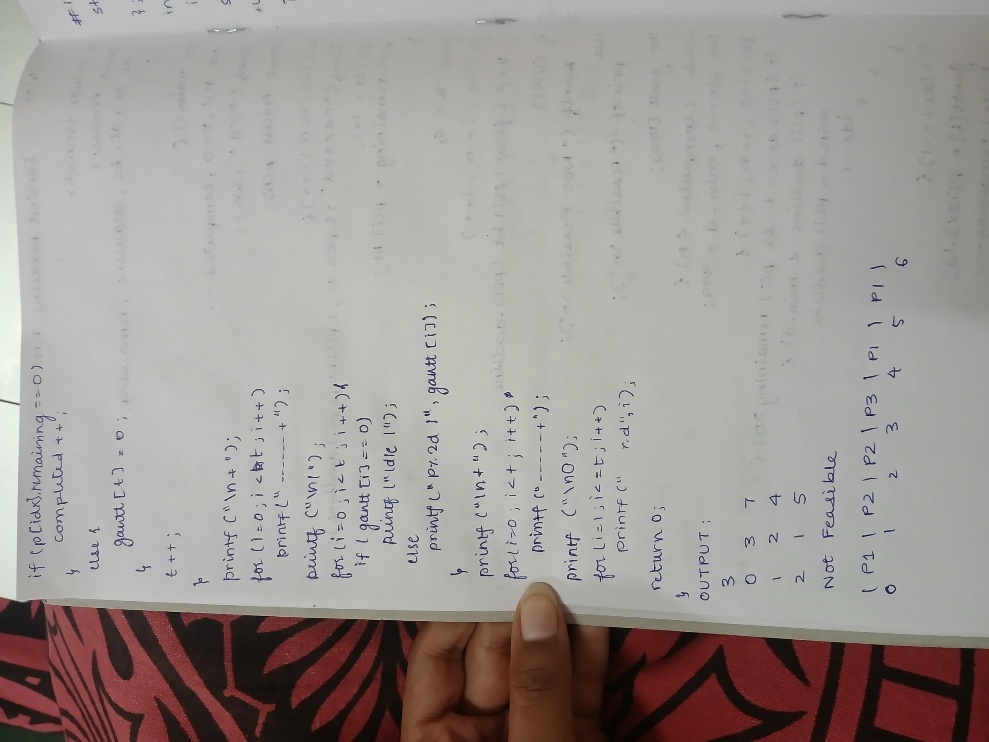 if (p[idx].remaining == 0)
completed ++;
}
else {
gantt [t] = 0;
}
t++;
}
printf ("\n+");
for (i=0; i<t; i++)
printf ("------+");
printf ("\n|");
for (i=0; i<t; i++){
if (gantt [i]==0)
printf ("Idle |");
else
printf (" P%.2d |", gantt [i]);
}
printf ("\n+");
for (i=0; i<t; i++)
printf ("------+");
printf ("\n0");
for (i=1; i<=t; i++)
printf (" %d", i);
return 0;
}
OUTPUT:
3
0 3 7
1 2 4
2 1 5
Not Feasible
| P1 | P2 | P2 | P3 | P1 | P1 |
0 1 2 3 4 5 6